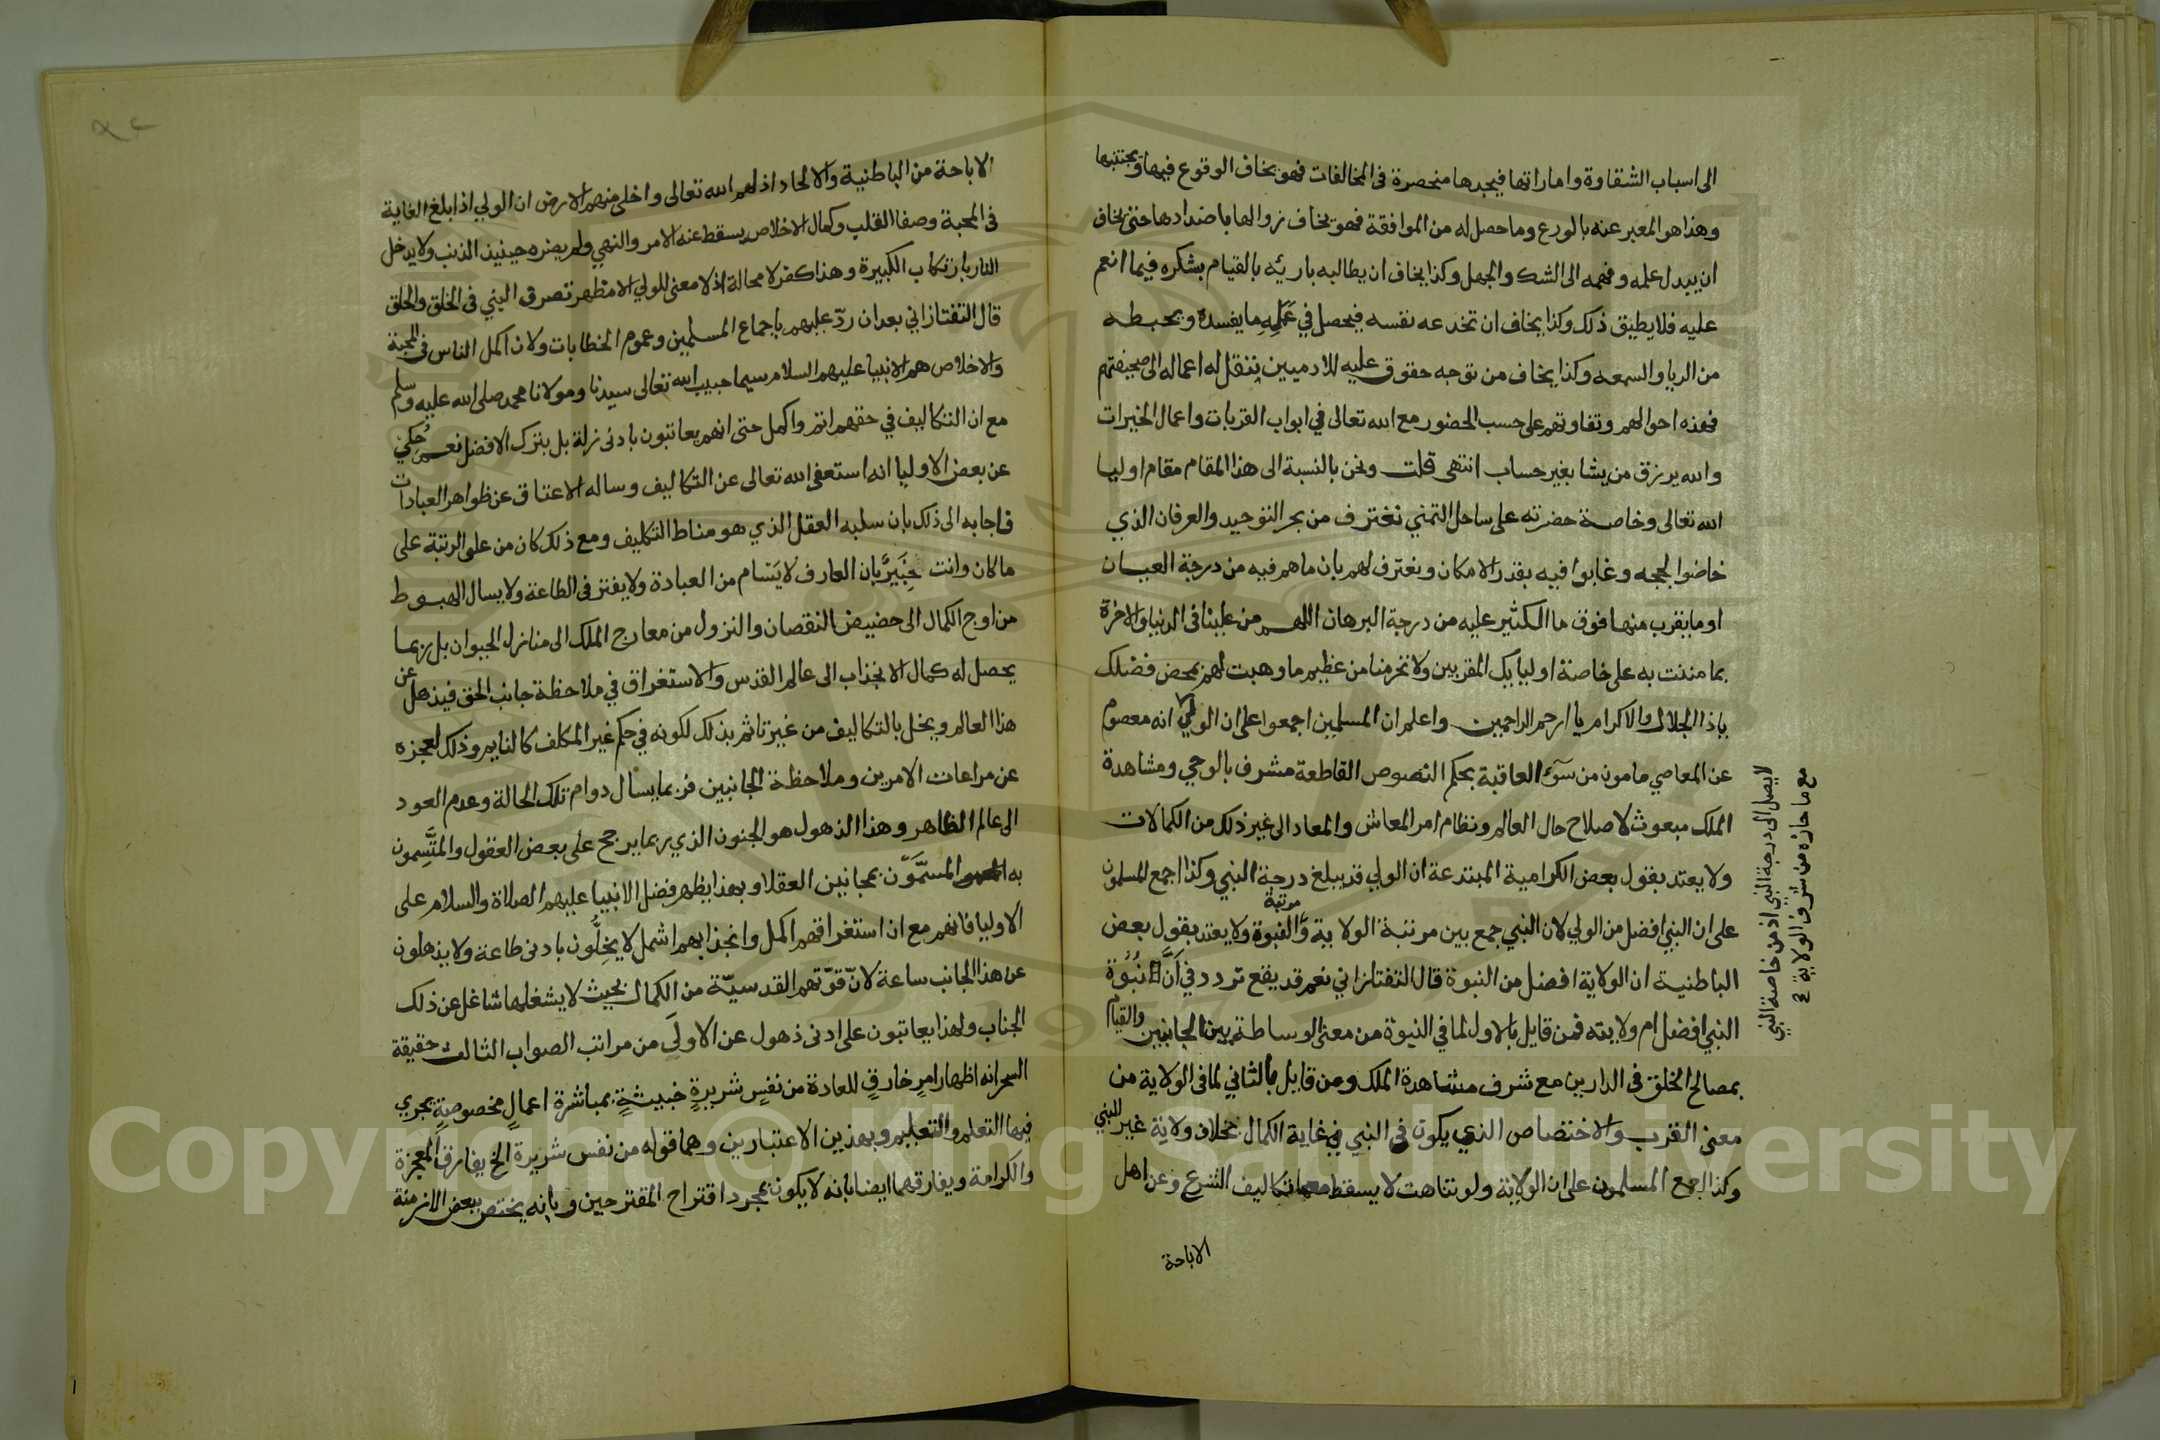 الى اسباب الشقاوة واماراتها فيجدها منحصرة فى المخالفات فهو يخاف الوقوع فيها ويجتنبها
وهذا هو المعبر عنه بالورع وما حصل له من الموافقة فهو يخاف زوالها باضدادها حتى يخاف
ان يبدل علمه وفهمه الى الشك والجهل وكذا يخاف ان يطالبه بارئه بالقيام بشكره فيما انعم
عليه فلا يطيق ذلك وكذا يخاف ان تخدعه نفسه فيحصل في عَمَلِهِ ما يفسده ويحبطه
من الريا والسمعه وكذا يخاف من توجه حقوق عليه للادميين تنتقل له اعماله الى صحيفتهم
فهذه احوالهم وتفاوتهم على حسب الحضور مع الله تعالى في ابواب القربات واعمال الخيرات
والله يرزق من يشا بغير حساب انتهى قلت ونحن بالنسبة الى هذا المقام مقام اوليا
الله تعالى وخاصة حضرته على ساحل التمني نغترف من بحر التوحيد والعرفان الذي
خاضوا لججه وغابوا فيه بقدر الامكان ونعترف لهم بان ما هم فيه من درجة العيان
او ما يقرب منها فوق ما الكثير عليه من درجة البرهان اللهم من علينا فى الدنيا والاخرة
بما مننت به على خاصة اوليايك المقربين ولا تحرمنا من عظيم ما وهبت لهم بمحض فضلك
ياذا الجلال والاكرام يا ارحم الراحمين واعلم ان المسلمين اجمعوا على ان الولي انه معصوم
لا يصل الى درجة النبي اذ من خاصة النبي
مع ما حازه من شرف الولاية
عن المعاصي مامون من سوء العاقبة بحكم النصوص القاطعة مشرف بالوحي ومشاهدة
الملك مبعوث لاصلاح حال العالم ونظام امر المعاش والمعاد الى غير ذلك من الكمالات
ولا يعتد بقول بعض الكرامية المبتدعة ان الولي قد يبلغ درجة النبي وكذا اجمع المسلمون
على ان النبي افضل من الولي لان النبي جمع بين مرتبة الولاية ومرتبة النبوة ولا يعتد بقول بعض
الباطنية ان الولاية افضل من النبوة قال التفتازاني نعم قد يقع تردد في انَّ نُبُوة
النبي افضل ام ولايته فمن قايل بالاول لما في النبوة من معنى الوساطة بين الجانبين والقيام
بمصالح الخلق فى الدارين مع شرف مشاهدة الملك ومن قايل بالثاني لما فى الولاية من
معنى القرب والاختصاص الذي يكون فى النبي في غاية الكمال بخلاف ولاية غير النبي
وكذا اجمع المسلمون على ان الولاية ولو تناهت لا يسقط معها تكاليف الشرع وعن اهل
الاباحة
الاباحة من الباطنية والالحاد اذلهم الله تعالى واخلى منهم الارض ان الولي اذا بلغ الغاية
فى المحبة وصفا القلب وكمال الاخلاص يسقط عنه الامر والنهي ولم يضره حينيذ الذنب ولا يدخل
النار بارتكاب الكبيرة وهذا كفر لا محالة اذ لا معنى للولي الا مظهر تصرف النبي فى الخلق والحق
قال التفتازاني بعد ان ردّ عليهم باجماع المسلمين وعموم الخطابات ولان اكمل الناس فى المحبة
والاخلاص هم الانبيا عليهم السلام سيما حبيب الله تعالى سيدنا ومولانا محمد صلى الله عليه وسلم
مع ان التكاليف في حقهم اتم واكمل حتى انهم يعاتبون بادنى زلة بل بترك الافضل نعم حُكِي
عن بعض الاوليا انه استعفى الله تعالى عن التكاليف وساله الاعتاق عن ظواهر العبادات
فاجابه الى ذلك بان سلبه العقل الذي هو مناط التكليف ومع ذلك كان من علو الرتبة على
ما كان وانت خَبِيَرٌ بان العارف لا يَسَام من العبادة ولا يفتر فى الطاعة ولا يسال الهبوط
من اوج الكمال الى حضيض النقصان والنزول من معارج الملك الى منازل الحيوان بل ربما
يحصل له كمال الانجذاب الى عالم القدس والاستغراق في ملاحظة جانب الحق فيذهل عن
هذا العالم ويخل بالتكاليف من غير تاثم بذلك لكونه في حكم غير المكلف كالنايم وذلك لعجزه
عن مراعات الامرين وملاحظة الجانبين فربما يسال دوام تلك الحالة وعدم العود
الى عالم الظاهر وهذا الذهول هو الجنون الذي ربما يرجح على بعض العقول والمتَّسِمون
به المسمَّوْن بمجانين العقلا وبهذا يظهر فضل الانبيا عليهم الصلاة والسلام على
الاوليا فانهم مع ان استغراقهم اكمل وانجذابهم اشمل لا يخِلُّون بادنى طاعة ولا يذهلون
عن هذا الجانب ساعة لانّ قوّتهم القدسيّة من الكمال بحيث لا يشغلها شاغل عن ذلك
الجناب ولهذا يعاتبون على ادنى ذهول عن الاولَى من مراتب الصواب الثالث حقيقة
السحر انه اظهار امرٍ خارقٍ للعادة من نفسٍ شريرةٍ خبيثةٍ بمباشرة اعمالٍ مخصوصةٍ يجري
فيها التعلم والتعليم وبهذين الاعتبارين وهما قوله من نفس شريرة الخ يفارق المعجزة
والكرامة ويفارقهما ايضا بانه لا يكون بمجرد اقتراح المقترحين وبانه يختص ببعض الازمنة
Copyright © King Saud University